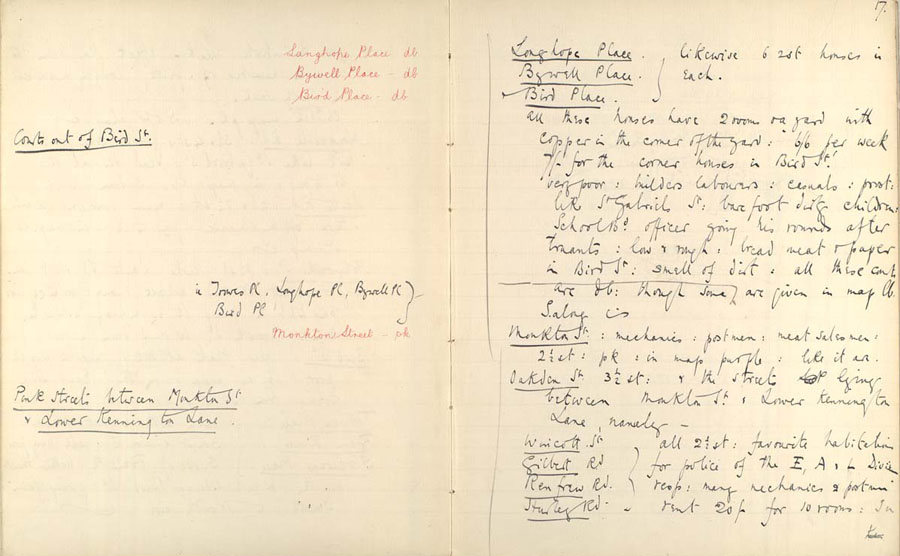 Langhope Place db
Bywell Place - db
Bird Place - db
Courts out of Bird St.
in Towers Pl, Longhope Pl, Bywell Pl
Bird Pl
Monkton Street - pk
Pink Streets between Monkton St
& Lower Kennington Lane.
17.
Longhope Place. likewise 6 2 st houses in
Bywell Place. each.
Bird Place.
all these houses have 2 rooms & a yard with
copper in the corner of the yard: 6/6 per week
7/- for the corner houses in Bird St.
very poor: builders labourers: casuals: prost:
like St Gabriels St: barefoot dirty children:
School Bd officer going his rounds after
truants: low & rough: bread meat & paper
in Bird St: smell of dirt: all these courts
are db: though some are given in map lb.
S. along
Monkton St: mechanics: postmen: meat salesmen:
2½ st: pk: in map purple: like it are
Oakden St 3½ st: & the streets lying
between Monkton St & Lower Kennington
Lane, namely -
Wincott St all 2½ st: favourite habitation
Gilbert Rd for police of the E, A & L Division
Renfrew Rd. resp: many mechanics & postmen
Rd - rent 20/- for 10 rooms: In